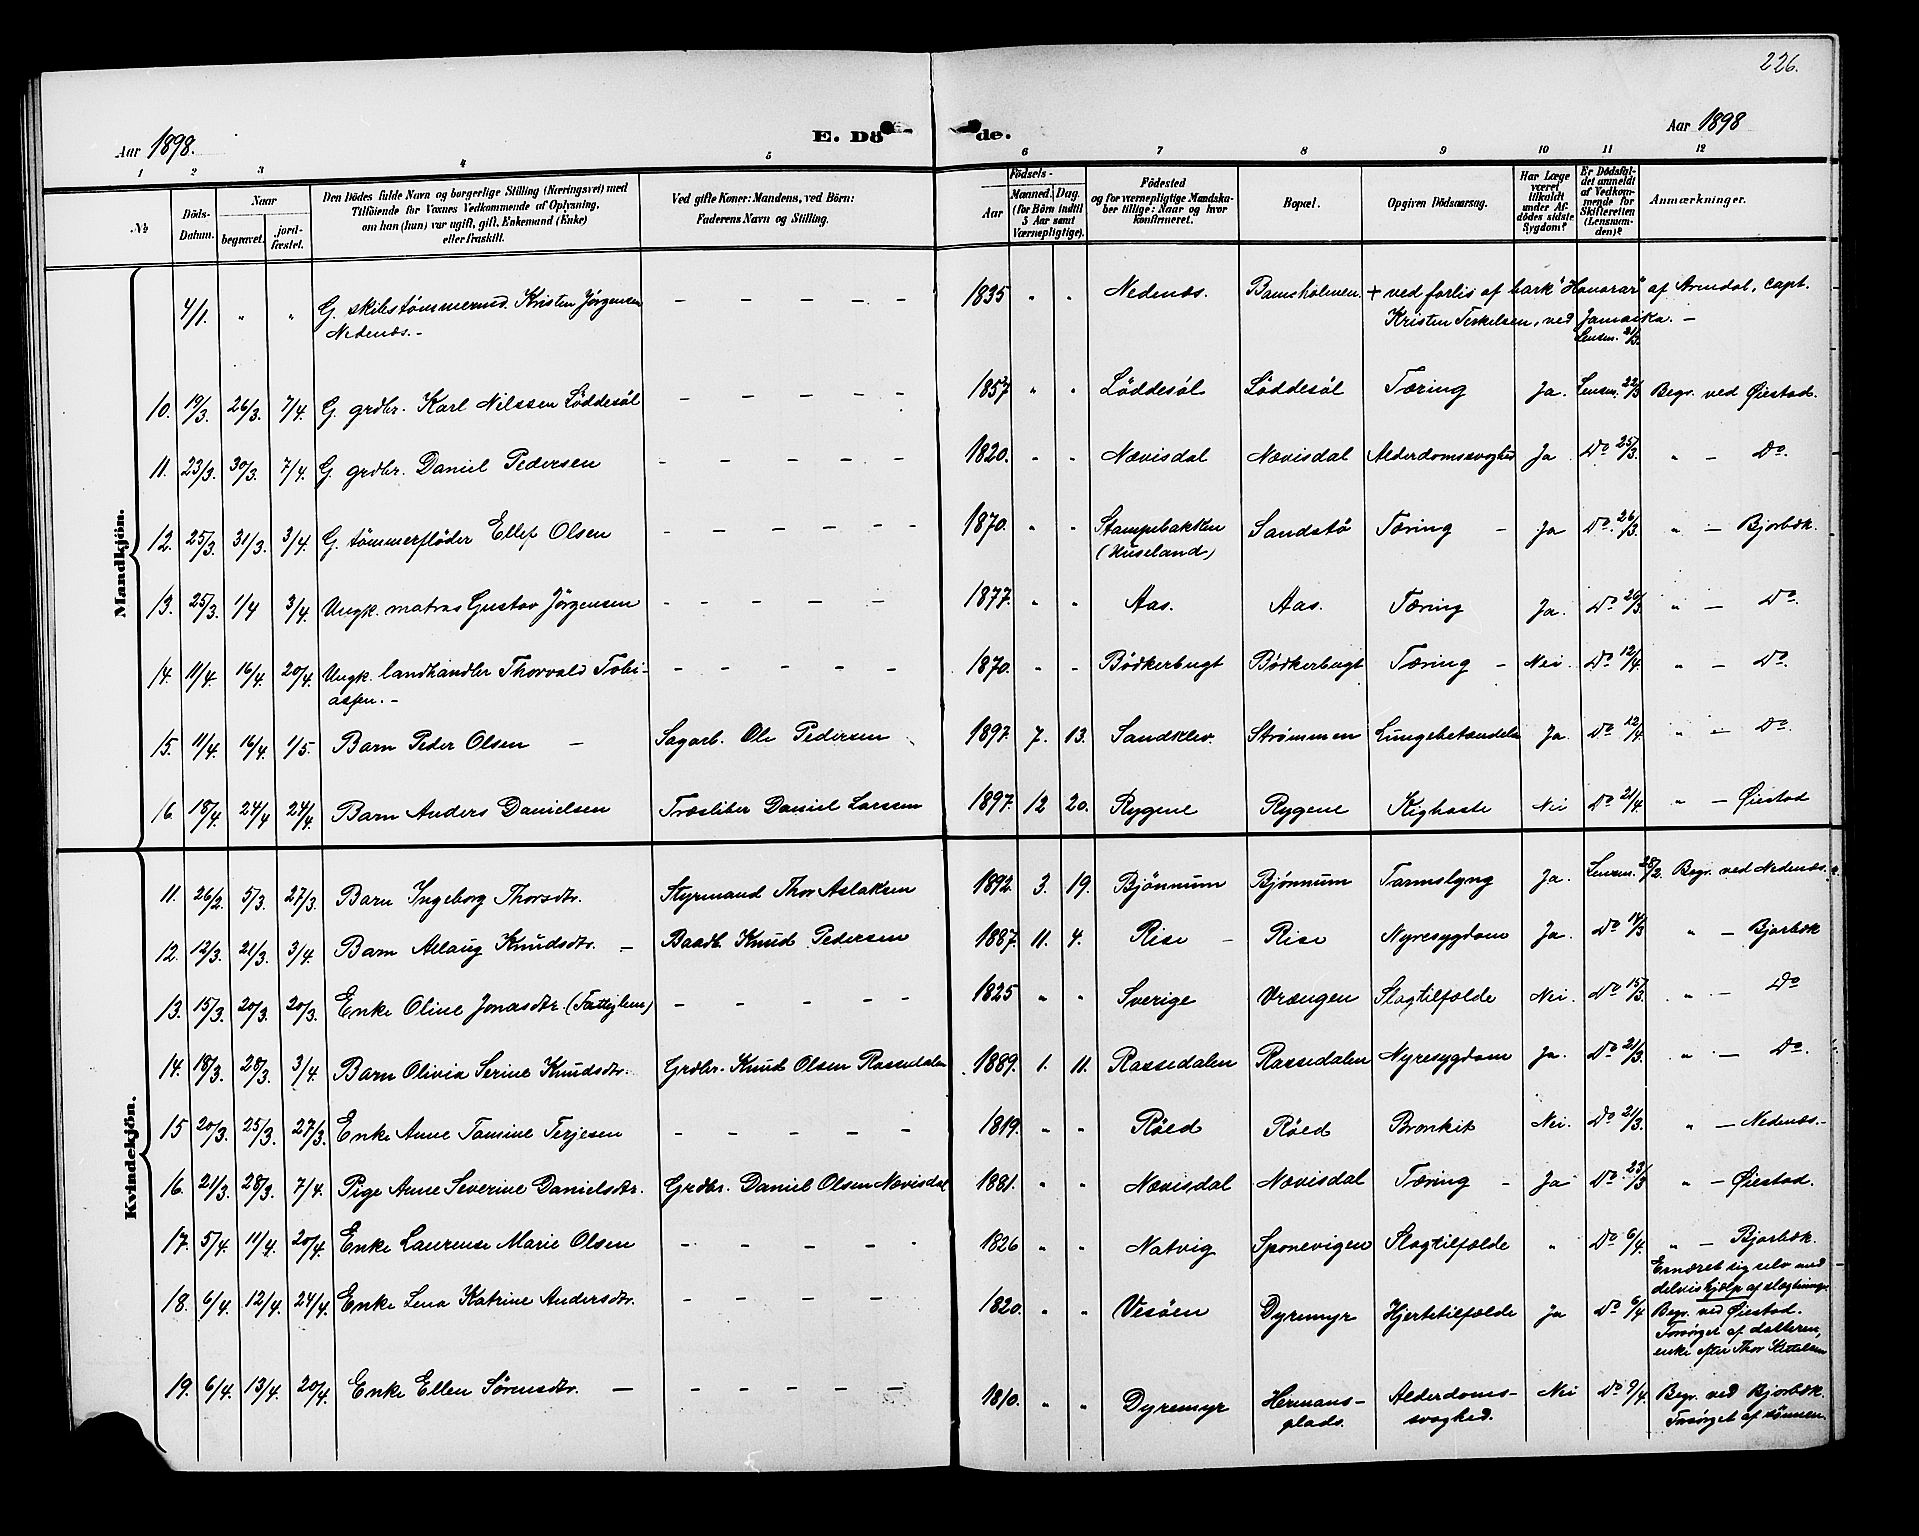 226.
Aar 1898.
E. Dö de.
Aar 1898
1 2 3 4 5 6 7 8 9 10 11 12
№
Döds-Datum.
Naar
begravet.
jord-fæstet.
Den Dödes fulde Navn og borgerlige Stilling (Næringsvei) med
Tilföiende for Voxnes Vedkommende af Oplysning,
om han (hun) var ugift, gift, Enkemand (Enke)
eller fraskilt.
Ved gifte Koner: Mandens, ved Börn:
Faderens Navn og Stilling.
Födsels-
Aar
Maaned. Dag.
(for Börn indtil
5 Aar samt
Værnepligtige).
Födested
og for værnepligtige Mandska-
ber tillige: Naar og hvor
konfirmeret.
Bopæl.
Opgiven Dödsaarsag.
Har Læge
været
tilkaldt
under Af-
dödes sidste
Sygdom?
Er Dödsfal-
det anmeldt
af Vedkom-
mende for
Skifteretten
(Lensman-
den)?
Anmærkninger.
Mandkjön.
4/1. " " G. skibstømmermd. Kristen Jørgensen — — — — — 1835 " " Nedenæs. Bamseholmen + ved forlis af bark "Honorar" af Arendal, capt.
Nedenæs. — Kristen Terkelsen, ved Jamaika. —
Lensm. 21/3.
10. 19/3. 26/3. 7/4. G. grdbr. Karl Nilssen Løddesøl — — — — — 1857 " " Løddesøl Løddesøl Tæring Ja. Lensm. 22/3 Begr. ved Øiestad.
11. 23/3. 30/3. 7/4. G. grdbr. Daniel Pedersen — — — — — 1820. " " Nævisdal Nævisdal Alderdomssvaghed Ja Do 25/3. " — Do.
12. 25/3. 31/3. 3/4. G. tømmerfløder Ellef Olsen — — — — — 1870. " " Stampebakken Sandstø Tæring — Ja Do. 26/3. " — Bjorbæk.
(Huseland)
13. 25/3. 1/4 3/4. Ungk. matros Gustav Jørgensen — — — — 1877. " " Aas. Aas. Tæring Ja. Do 26/3. " — Do.
14. 11/4. 16/4. 20/4. Ungk. landhandler Thorvald Tobi- — — — — — 1870. " " Bødkerbugt Bødkerbugt Tæring — Nei. Do 12/4. " — Do
assen. —
15. 11/4. 16/4. 1/5. Barn Peder Olsen — Sagarb. Ole Pedersen 1897. 7. 13. Sandklev. Strømmen Lungebetændelse Ja. Do 12/4. " — Do
16. 18/4. 24/4 24/4. Barn Anders Danielsen Træsliber Daniel Larsen 1897. 12 20. Rygene Rygene Kighoste Nei Do 21/4. " — Øiestad
Kvindekjön.
11. 26/2 5/3. 27/3. Barn Ingeborg Thorsdtr. Styrmand Thor Aslaksen 1892. 3. 19. Bjønnum Bjønnum Tarmslyng Ja. Lensm. 28/2. Begr. ved Nedenæs.
12. 12/3. 21/3. 3/4. Barn Aslaug Knudsdtr. — Baadb. Knud Pedersen 1887. 11. 4. Rise — Rise Nyresygdom Ja. Do 14/3 " — Bjorbæk
13. 15/3. 20/3. 20/3. Enke Oline Jonasdtr. — — — — — 1825 " " Sverige Vrængen Slagtilfælde Nei. Do 15/3. " — Do
14. 18/3. 28/3. 3/4. Barn Olivia Serine Knudsdtr. Grdbr. Knud Olsen Rossedalen 1889. 1. 11. Rossedalen Rossedalen Nyresygdom Ja. Do 21/3. " — Do.
15 20/3. 25/3. 27/3. Enke Anne Tomine Terjesen — — — — — 1819. " " Røed Røed Bronkit Nei. Do 21/3. " — Nedenæs. —
16. 21/3. 28/3. 7/4. Pige Anne Severine Danielsdtr. Grdbr. Daniel Olsen Nævisdal 1881. " " Nævisdal Nævisdal Tæring — Ja Do 23/3 " — Øiestad.
17. 5/4. 11/4. 20/4. Enke Laurense Marie Olsen — — — — 1826 " " Natvig Sponevigen Slagtilfælde " Do 6/4. " — Bjorbæk.
Ernæret sig selv med
delvis hjælp af slægtninge.
18. 6/4. 12/4. 24/4. Enke Lena Katrine Andersdtr. — — — — — 1820. " " Vesøen Dyremyr Hjertetilfælde Ja Do 6/4 Begr. ved Øiestad.
Forsørget af datteren,
enke efter Thor Kittelsen
19. 6/4. 13/4. 20/4. Enke Ellen Sørensdtr. — — — — — — 1810. " " Dyremyr Hermans- Alderdoms- Nei Do 9/4. Begr. ved Bjorbæk.
glads. svaghed. Forsørget af sønnen.